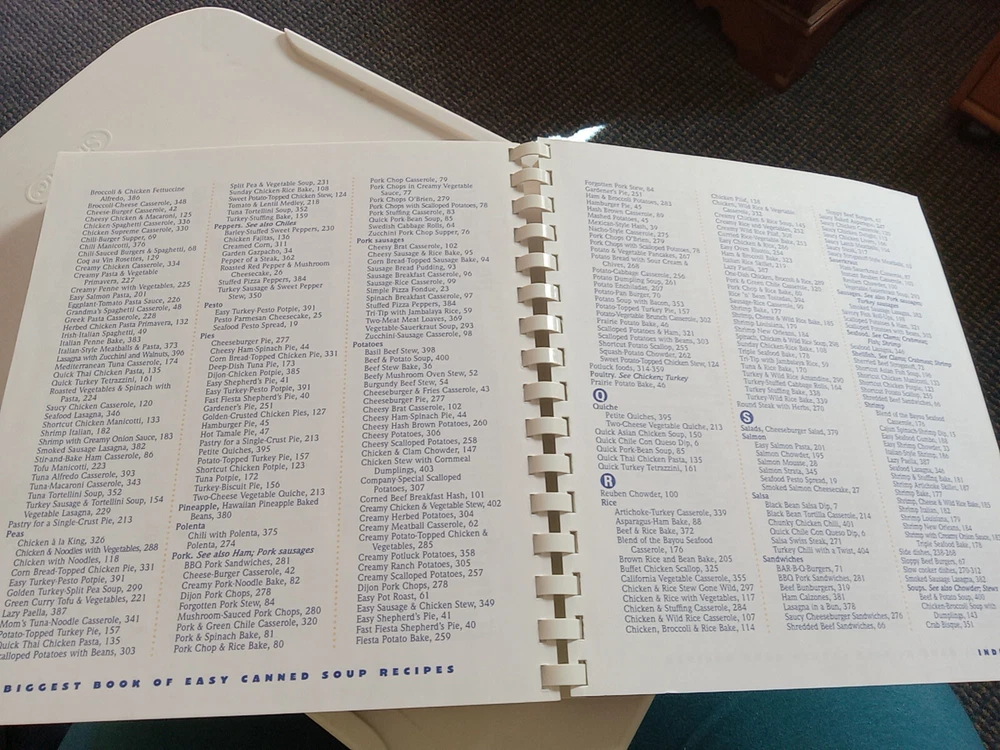 Broccoli & Chicken Fettuccine
Alfredo, 386
Broccoli Cheese Casserole, 348
Cheese-Burger Casserole, 42
Cheesy Chicken & Macaroni, 125
Chicken Spaghetti Casserole, 336
Chicken Supreme Casserole, 330
Chili-Burger Supper, 69
Chili Manicotti, 376
Chili-Sauced Burgers & Spaghetti, 68
Coq au Vin Rosettes, 129
Creamy Chicken Casserole, 334
Creamy Pasta & Vegetable
Primavera, 227
Creamy Penne with Vegetables, 225
Easy Salmon Pasta, 201
Eggplant-Tomato Pasta Sauce, 226
Grandma's Spaghetti Casserole, 48
Greek Pasta Casserole, 228
Herbed Chicken Pasta Primavera, 132
Irish-Italian Spaghetti, 49
Italian Penne Bake, 383
Italian-Style Meatballs & Pasta, 373
Lasagna with Zucchini and Walnuts, 396
Mediterranean Tuna Casserole, 174
Quick Thai Chicken Pasta, 135
Quick Turkey Tetrazzini, 161
Roasted Vegetables & Spinach with
Pasta, 224
Saucy Chicken Casserole, 120
Seafood Lasagna, 346
Shortcut Chicken Manicotti, 133
Shrimp Italian, 182
Shrimp with Creamy Onion Sauce, 183
Smoked Sausage Lasagna, 382
Stir-and-Bake Ham Casserole, 86
Tofu Manicotti, 223
Tuna Alfredo Casserole, 393
Tuna-Macaroni Casserole, 343
Tuna Tortellini Soup, 352
Turkey Sausage & Tortellini Soup, 154
Vegetable Lasagna, 229
Pastry for a Single-Crust Pie, 213
Peas
Chicken à la King, 326
Chicken & Noodles with Vegetables, 288
Chicken with Noodles, 118
Corn Bread-Topped Chicken Pie, 331
Easy Turkey-Pesto Potpie, 391
Golden Turkey-Split Pea Soup, 299
Green Curry Tofu & Vegetables, 221
Lazy Paella, 387
Mom's Tuna-Noodle Casserole, 341
Potato-Topped Turkey Pie, 157
Quick Thai Chicken Pasta, 135
Scalloped Potatoes with Beans, 303
Split Pea & Vegetable Soup, 231
Sunday Chicken Rice Bake, 108
Sweet Potato-Topped Chicken Stew, 124
Tomato & Lentil Medley, 218
Tuna Tortellini Soup, 352
Turkey-Stuffing Bake, 159
Peppers. See also Chiles
Barley-Stuffed Sweet Peppers, 230
Chicken Fajitas, 136
Creamed Corn, 311
Garden Gazpacho, 34
Pepper of a Steak, 362
Roasted Red Pepper & Mushroom
Cheesecake, 26
Stuffed Pizza Peppers, 384
Turkey Sausage & Sweet Pepper
Stew, 350
Pesto
Easy Turkey Pesto Potpie, 391
Pesto Parmesan Chicken Cakes, 25
Seafood Pesto Spread, 19
Pies
Cheeseburger Pie, 277
Cheesy Ham-Spinach Pie, 44
Corn Bread Topped Chicken Pie, 331
Deep-Dish Tuna Pie, 173
Dijon Chicken Potpie, 385
Easy Shepherd's Pie, 41
Easy Turkey-Pesto Potpie, 391
Fast Fiesta Shepherd's Pie, 40
Gardener's Pie, 251
Golden-Crusted Chicken Pies, 127
Hamburger Pie, 45
Hot Tamale Pie, 47
Pastry for a Single-Crust Pie, 213
Petite Quiches, 395
Potato-Topped Turkey Pie, 157
Shortcut Chicken Potpie, 123
Tuna Potpie, 172
Turkey-Biscuit Pie, 156
Two-Cheese Vegetable Quiche, 213
Pineapple, Hawaiian Pineapple Baked
Beans, 380
Polenta
Chili with Polenta, 375
Polenta, 274
Pork. See also Ham; Pork sausages
BBQ Pork Sandwiches, 281
Cheese-Burger Casserole, 42
Creamy Pork-Noodle Bake, 82
Dijon Pork Chops, 278
Forgotten Pork Stew, 84
Mushroom-Sauced Pork Chops, 280
Pork & Green Chile Casserole, 320
Pork & Spinach Bake, 81
Pork Chop & Rice Bake, 80
Pork Chop Casserole, 79
Pork Chops in Creamy Vegetable
Sauce, 77
Pork Chops O'Brien, 279
Pork Chops with Scalloped Potatoes, 78
Pork Stuffing Casserole, 83
Quick Pork-Bean Soup, 85
Swedish Cabbage Rolls, 64
Zucchini Pork Chop Supper, 76
Pork sausages
Cheesy Brat Casserole, 102
Cheesy Sausage & Rice, 95
Corn Bread Topped Sausage Bake, 94
Sausage Bread Pudding, 93
Sausage Breakfast Casserole, 96
Sausage Rice Casserole, 99
Simple Pizza Fondue, 23
Spinach Breakfast Casserole, 97
Stuffed Pizza Peppers, 384
Tri Tip with Jambalaya Rice, 59
Two-Meat Meat Loaves, 369
Vegetable-Sauerkraut Soup, 293
Zucchini-Sausage Casserole, 98
Potatoes
Basil Beef Stew, 398
Beef & Potato Soup, 400
Beef Stew Bake, 36
Beefy Mushroom Oven Stew, 52
Burgundy Beef Stew, 54
Cheeseburger & Fries Casserole, 43
Cheeseburger Pie, 277
Cheesy Brat Casserole, 102
Cheesy Ham-Spinach Pie, 44
Cheesy Hash Brown Potatoes, 260
Cheesy Potatoes, 306
Cheesy Scalloped Potatoes, 258
Chicken & Clam Chowder, 147
Chicken Stew with Cornmeal
Dumplings, 403
Company-Special Scalloped
Potatoes, 307
Corned Beef Breakfast Hash, 101
Creamy Chicken & Vegetable Stew, 402
Creamy Herbed Potatoes, 304
Creamy Meatball Casserole, 62
Creamy Potato-Topped Chicken &
Vegetables, 285
Creamy Potluck Potatoes, 358
Creamy Ranch Potatoes, 305
Creamy Scalloped Potatoes, 257
Dijon Pork Chops, 278
Easy Pot Roast, 61
Easy Sausage & Chicken Stew, 349
Easy Shepherd's Pie, 41
Fast Fiesta Shepherd's Pie, 40
Fiesta Potato Bake, 259
BIGGEST BOOK OF EASY CANNED SOUP RECIPES
Forgotten Pork Stew, 84
Gardener's Pie, 251
Ham & Broccoli Potatoes, 283
Hamburger Pie, 45
Hash Brown Casserole, 69
Mashed Potatoes, 45
Mexican-Style Hash, 39
Nacho-Style Casserole, 275
Pork Chops O'Brien, 279
Pork Chops with Scalloped Potatoes, 78
Potato & Vegetable Pancakes, 267
Potato Bread with Sour Cream &
Chives, 268
Potato-Cabbage Casserole, 256
Potato Dumpling Soup, 261
Potato Enchiladas, 207
Potato-Pan Burger, 70
Potato Soup with Bacon, 353
Potato-Topped Turkey Pie, 157
Potato-Vegetable Brunch Casserole, 302
Prairie Potato Bake, 46
Scalloped Potatoes & Ham, 321
Scalloped Potatoes with Beans, 303
Shortcut Potato Scallop, 255
Squash-Potato Chowder, 262
Sweet Potato-Topped Chicken Stew, 124
Potluck foods, 314-359
Poultry. See Chicken; Turkey
Prairie Potato Bake, 46
Q
Quiche
Petite Quiches, 395
Two-Cheese Vegetable Quiche, 213
Quick Asian Chicken Soup, 150
Quick Chile Con Queso Dip, 6
Quick Pork-Bean Soup, 85
Quick Thai Chicken Pasta, 135
Quick Turkey Tetrazzini, 161
R
Reuben Chowder, 100
Rice
Artichoke-Turkey Casserole, 339
Asparagus-Ham Bake, 88
Beef & Rocky, 372
Blend of the Bayou Seafood
Casserole, 176
Brown Rice and Bean Bake, 205
Buffet Chicken Scallop, 325
California Vegetable Casserole, 355
Chicken & Rice Stew Gone Wild, 297
Chicken & Rice with Vegetables, 117
Chicken & Stuffing Casserole, 284
Chicken & Wild Rice Casserole, 107
Chicken, Broccoli & Rice Bake, 114
Lazy Paella, 387
Pork Chop & Rice Bake, 80
Shrimp Bake, 177
Sunday Chicken-Rice Bake, 108
Triple Seafood Bake, 178
Tuna & Rice Bake, 170
Turkey-Stuffing Bake, 338
Turkey-Wild Rice Bake, 339
Round Steak with Herbs, 270
S
Salads, Cheeseburger Salad, 379
Salmon
Easy Salmon Pasta, 201
Salmon Chowder, 195
Salmon Mousse, 28
Salmon Strata, 345
Seafood Pesto Spread, 19
Smoked Salmon Cheesecake, 27
Salsa
Black Bean Salsa Dip, 7
Black Bean Tortilla Casserole, 214
Chunky Chicken Chili, 401
Quick Chile Con Queso Dip, 6
Salsa Swiss Steak, 271
Turkey Chili with a Twist, 404
Sandwiches
BAR-B-Q-Burgers, 71
BBQ Pork Sandwiches, 281
Beef Bunburgers, 319
Ham Calzones, 381
Lasagna in a Bun, 378
Saucy Cheeseburger Sandwiches, 276
Shredded Beef Sandwiches, 66
Shrimp
Blend of the Bayou Seafood
Casserole, 176
Lazy Paella, 387
Seafood Lasagna, 346
Shrimp Bake, 177
Shrimp Italian, 182
Shrimp Louisiana, 179
Shrimp New Orleans, 184
Shrimp with Creamy Onion Sauce, 183
Triple Seafood Bake, 178
Side dishes, 238-268
Sloppy Beef Burgers, 67
Slow cooker dishes, 270-312
Smoked Sausage Lasagna, 382
Soups. See also Chowder; Stews
Beef & Potato Soup, 400
Chicken-Broccoli Soup with
Dumplings, 143
Crab Bisque, 351